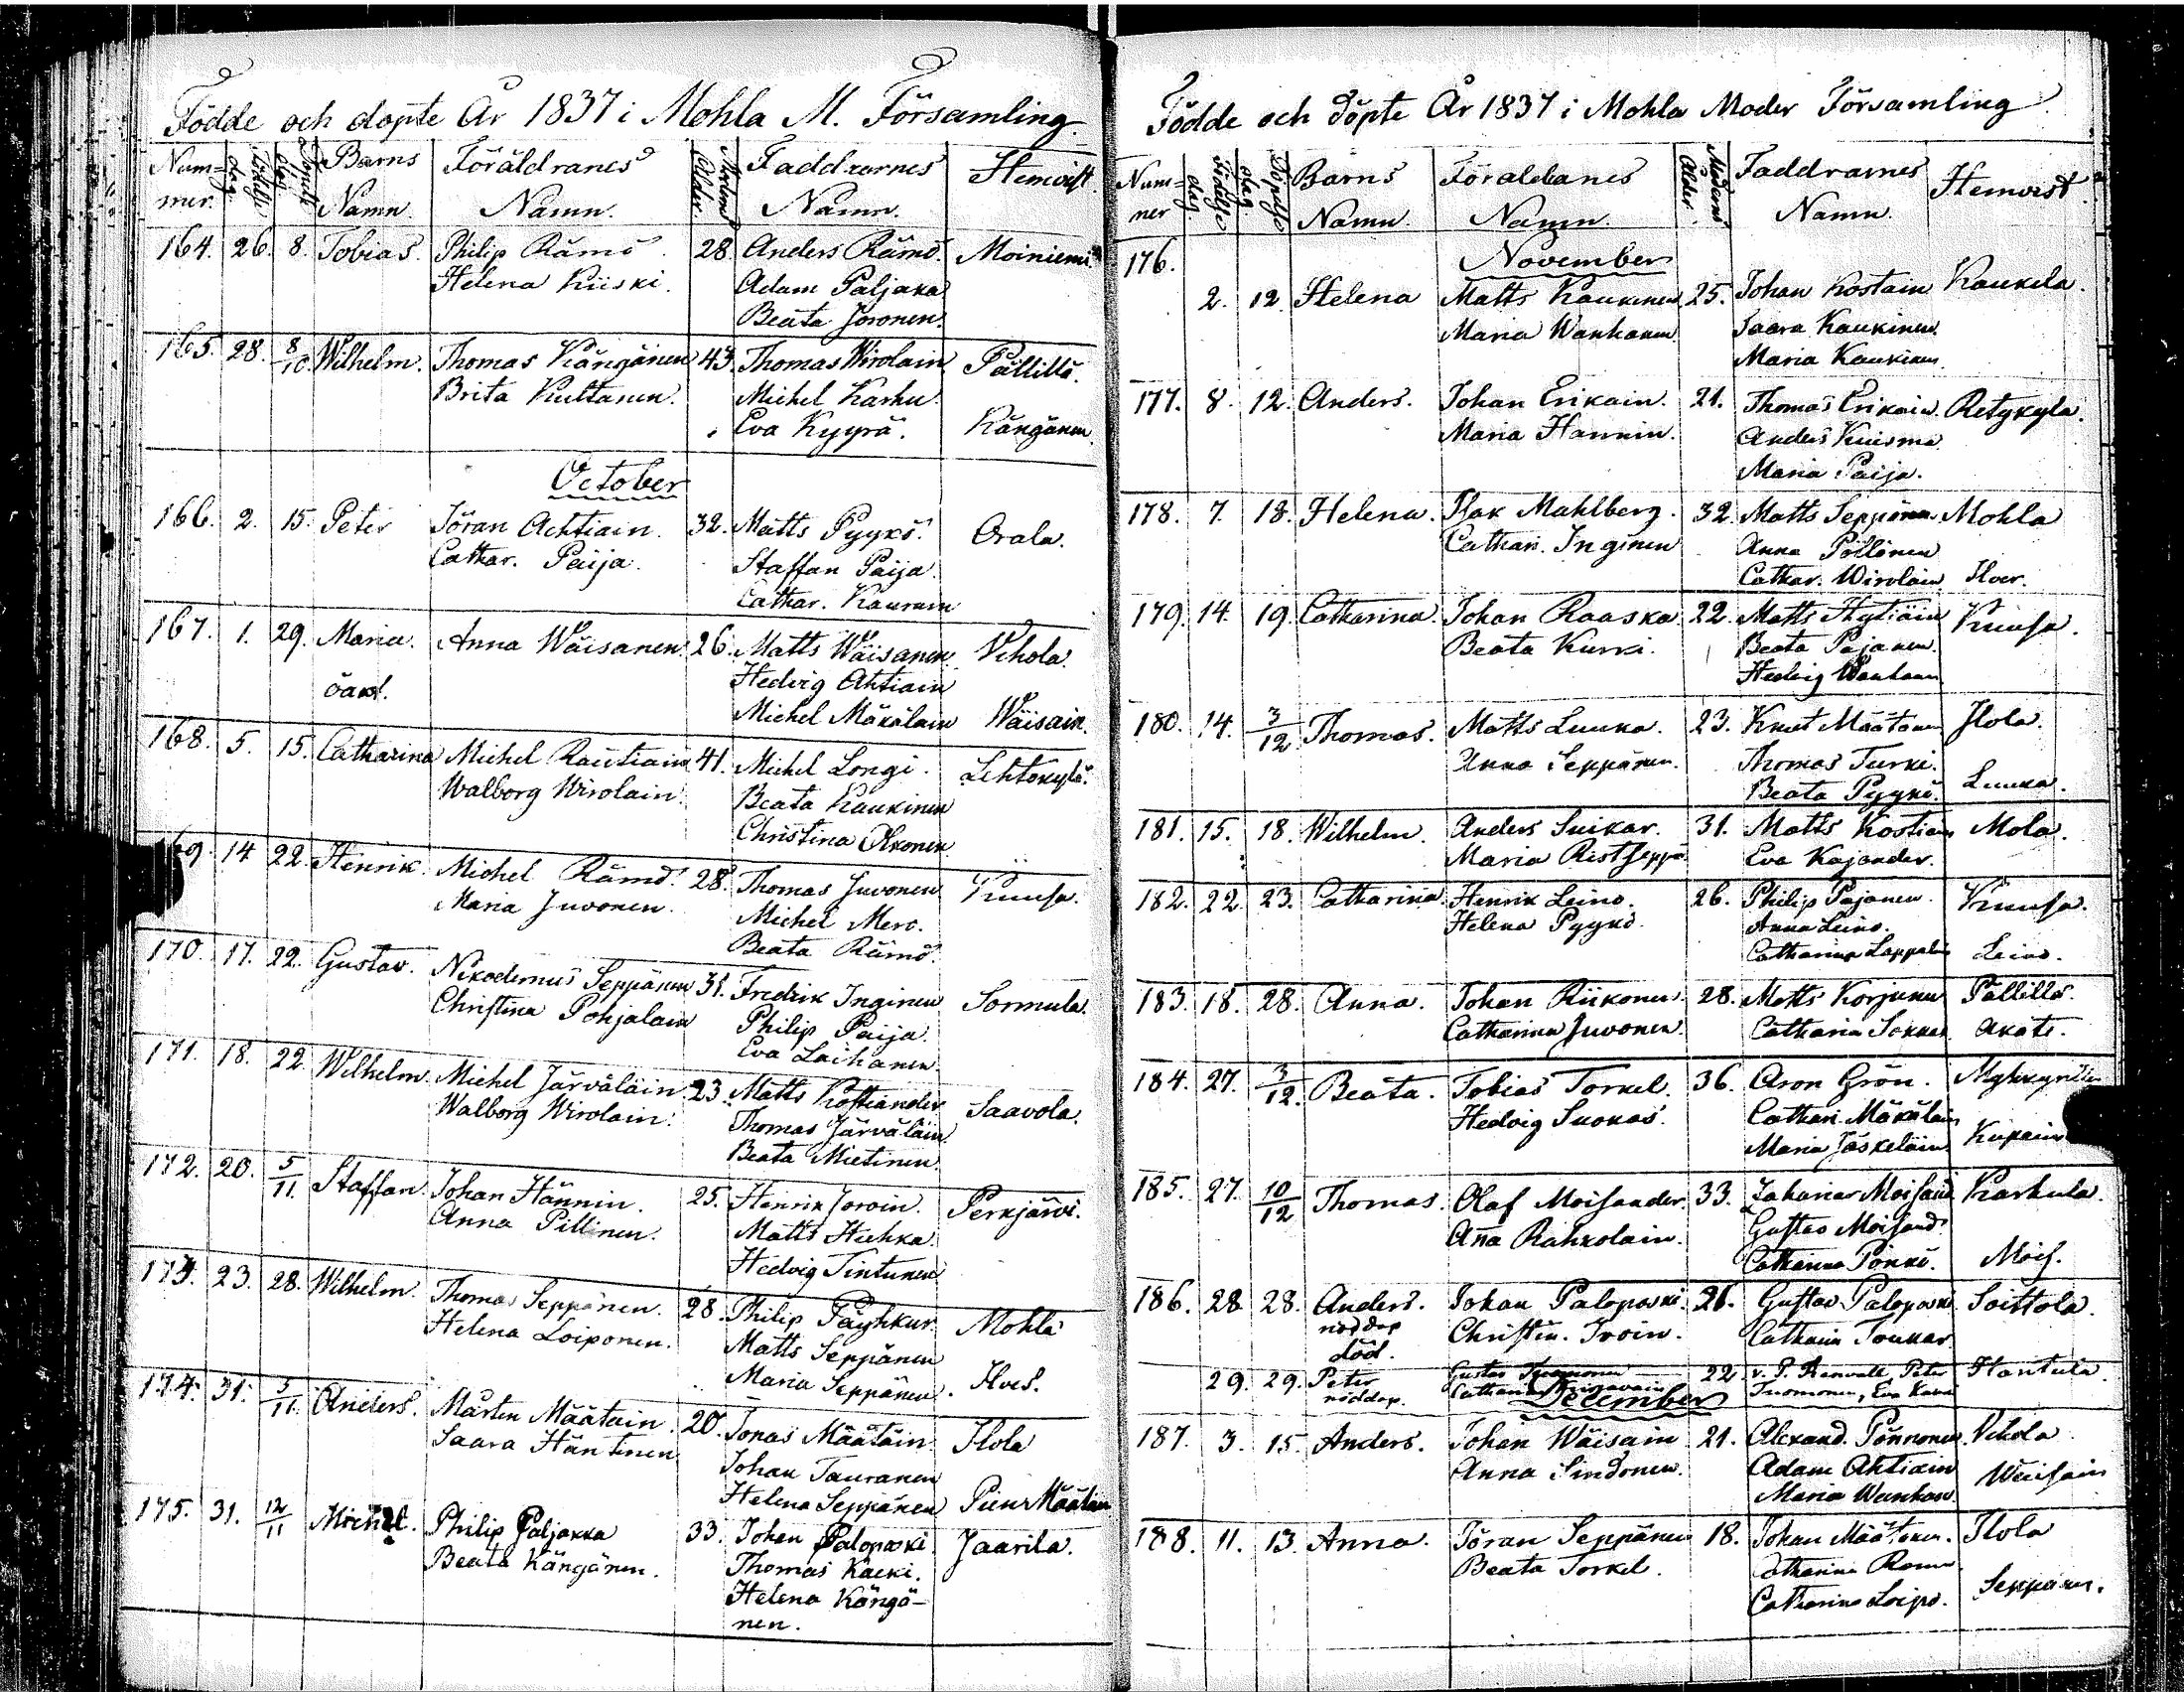 Födde och döpte År 1837 i Mohla M. Församling
Num= mer. Födelse dag Döpelse dag Barns Namn. Föräldranes Namn. Moderns Ålder. Faddrarnes Namn. Hemvist.
164. 26. 8. Tobias. Philip Rämö 28. Anders Rämö. Moiniemi
Helena Kiiski. Adam Paljaka
Beata Joronen.
165. 28. 8/10 Wilhelm. Thomas Kängänen 43. Thomas Wirolain Pällilö.
Brita Kultanen. Michel Karhu.
Eva Kyyrä. Kängänen.
October
166. 2. 15. Peter Jöran Achtiain. 32. Matts Pyykö. Orala.
Cathar. Paija. Staffan Paija.
Cathar. Kauranen
167. 1. 29. Maria. Anna Wäisanen. 26. Matts Wäisanen. Vihola.
öakt. Hedvig Ahtiain
Michel Mäkälain Wäisain.
168. 5. 15. Catharina Michel Rautiain 41. Michel Longi. Lehtokylä.
Walborg Wirolain. Beata Kaukinen
Christina Okonen
169. 14 22. Henrik. Michel Rämö. 28. Thomas Juvonen Kuusa.
Maria Juvonen. Michel Mero.
Beata Rämö.
170. 17. 22. Gustav. Nikodemus Seppänen 31. Fredrik Inginen Sormula.
Christina Pohjalain Philip Paija.
Eva Laihanen.
171. 18. 22. Wilhelm. Michel Järväläin 23. Matts Kostiander Saavola.
Walborg Wirolain. Thomas Järväläin.
Beata Mietinen.
172. 20. 5/11. Staffan. Johan Hännin. 25. Henrik Joroin. Perkjärvi.
Anna Pillinen. Matts Hiehka.
Hedvig Tintunen
173. 23. 28. Wilhelm. Thomas Seppänen. 28. Philip Päyhkur. Mohla
Helena Loiponen. Matts Seppänen
Maria Seppänen. Ilves.
174. 31. 5/11. Anders. Mårten Määtain. 20. Jonas Määtäin Ilola
Saara Häntinen Johan Tauranen
Helena Seppänen Pien Määtäin
175. 31. 12/11 Michel. Philip Paljakka 33. Johan Paloposki Jaarila.
Beata Kängänen. Thomas Kaeki.
Helena Kängä-
nen.
Födde och Döpte År 1837 i Mohla Moder Församling
Num= ner Födelse dag Döpelse dag. Barns Namn. Föräldranes Namn. Moderns Ålder. Faddrarnes Namn. Hemvist.
176. November
2. 12. Helena Matts Kaukinen 25. Johan Kostain Kaukila.
Maria Wanhanen Saara Kaukinen.
Maria Kaukinen.
177. 8. 12. Anders. Johan Erikain. 21. Thomas Erikain. Retykyla.
Maria Hannin. Anders Kuisma
Maria Paija.
178. 7. 18. Helena. Isak Mahlberg. 32. Matts Seppänen Mohla
Cathari. Inginen Anna Pöllönen
Cathar. Wirolain Ilver.
179. 14. 19. Catharina. Johan Raaska. 22. Matts Hytiäin Kuusa.
Beata Kurri. Beata Pajanen.
Hedvig Wanhanen
180. 14. 3/12 Thomas. Matts Luuka. 23. Knut Määtänen Ilola.
Anna Seppänen. Thomas Turki.
Beata Pyykö. Luuka.
181. 15. 18. Wilhelm. Anders Suikar. 31. Matts Kostian Mola.
Maria Ristseppä. Eva Kajander.
182. 22. 23. Catharina. Henrik Leino. 26. Philip Pajanen. Kuusa.
Helena Pyykö. Anna Leino.
Catharina Lappalain Leino.
183. 18. 28. Anna. Johan Riikonen. 28. Matts Korjunen Pällilä.
Catharina Juvonen. Catharina Sokkan
184. 27. 3/12. Beata. Tobias Torkel. 36. Aron Grön.
Hedvig Suokas. Cathari. Mäkälain
Maria Jäskeläin
185. 27. 10/12 Thomas. Olaf Moisander. 33. Zaharias Moisand Karhula.
Ana Rahkolain. Gustav Moisand
Catharina Pönkö. Mois.
186. 28. 28. Anders. Johan Paloposki. 26. Gustav Paloposki Soittola.
nöddop Christin. Iroin. Catharin Toukar
död.
29. 29. Peter Gustav Tuomonen 22 v. P. Renvall, Peter Hantula.
nöddop. Catharina Tuomonen, Eva
December
187. 3. 15. Anders. Johan Wäisain 21. Alexand. Pönnönen. Vihola
Anna Sindonen. Adam Ahtiain
Maria Wanhan. Wäisain
188. 11. 13. Anna. Jöran Seppänen 18. Johan Määtänen. Ilola
Beata Torkel. Catharina
Catharina Loipo. Seppänen.